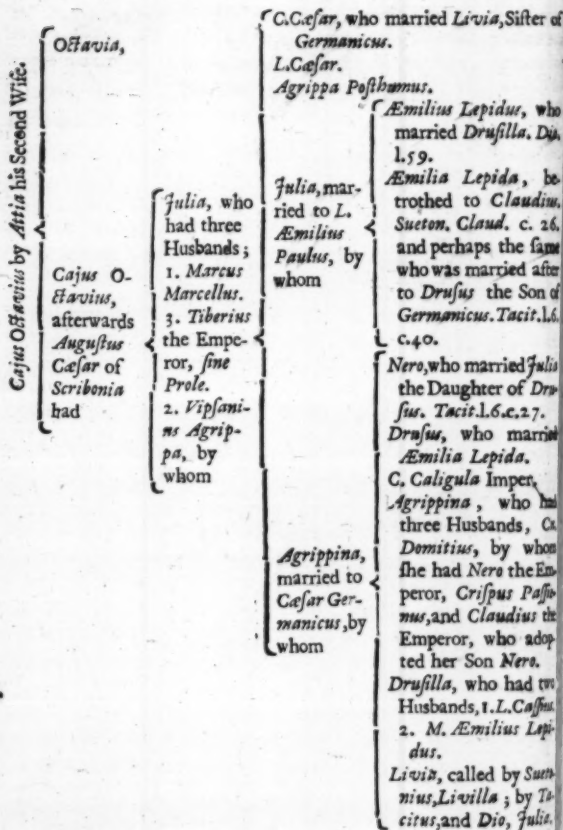 Cajus Octavius by Attia his Second Wife.
Octavia,
Cajus O-
ctavius,
afterwards
Augustus
Cæsar of
Scribonia
had
Julia, who
had three
Husbands;
1. Marcus
Marcellus.
3. Tiberius
the Empe-
ror, sine
Prole.
2. Vipsani-
us Agrip-
pa, by
whom
C.Cæsar, who married Livia, Sister of
Germanicus.
L.Cæsar.
Agrippa Posthumus.
Julia, mar-
ried to L.
Æmilius
Paulus, by
whom
Æmilius Lepidus, who
married Drusilla. Dio.
l.59.
Æmilia Lepida, be-
trothed to Claudius.
Sueton. Claud. c. 26.
and perhaps the same
who was married after
to Drusus the Son of
Germanicus. Tacit.l.6.
c.40.
Agrippina,
married to
Cæsar Ger-
manicus, by
whom
Nero, who married Julia
the Daughter of Dru-
sus. Tacit.l.6.c.27.
Drusus, who married
Æmilia Lepida.
C. Caligula Imper.
Agrippina, who had
three Husbands, Cn.
Domitius, by whom
she had Nero the Em-
peror, Crispus Passie-
nus, and Claudius the
Emperor, who adop-
ted her Son Nero.
Drusilla, who had two
Husbands, 1. L.Cassius.
2. M. Æmilius Lepi-
dus.
Livia, called by Sueto-
nius, Livilla; by Ta-
citus, and Dio, Julia.